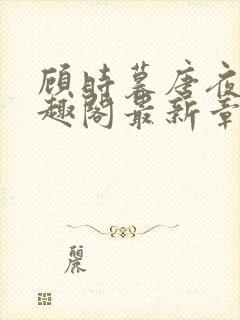 顾时暮唐夜
趣阁最新章
丽